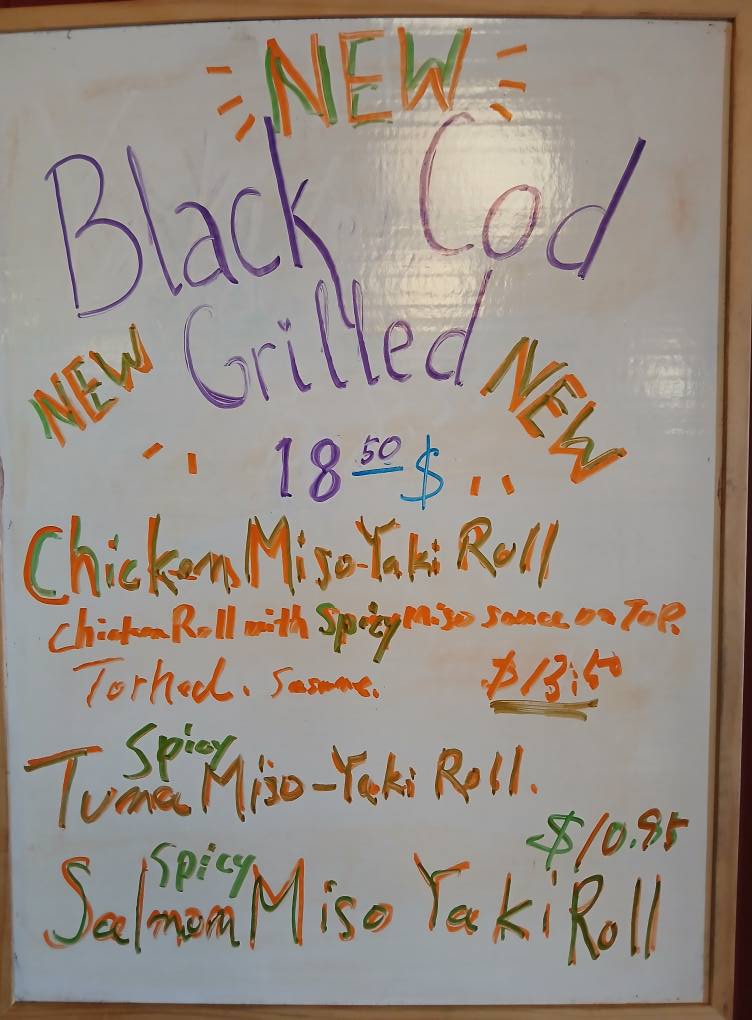 NEW
Black Cod
NEW Grilled NEW
18 50 $
Chicken Miso-Yaki Roll
Chicken Roll with Spicy Miso sauce on Top.
Torhed.
$13.50
Spicy
Tuna Miso-Yaki Roll.
$10.95
Spicy
Salmon Miso Yaki Roll